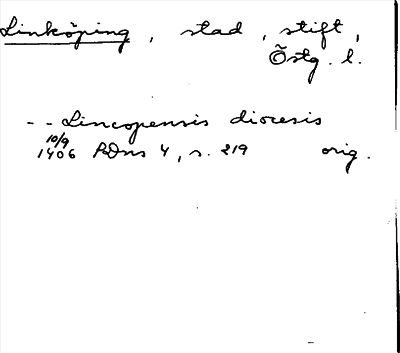 Linköping, stad, stift,
Östg. l.
-- Lincopensis diocesis
10/9
1406 RDns 4, s. 219 orig.